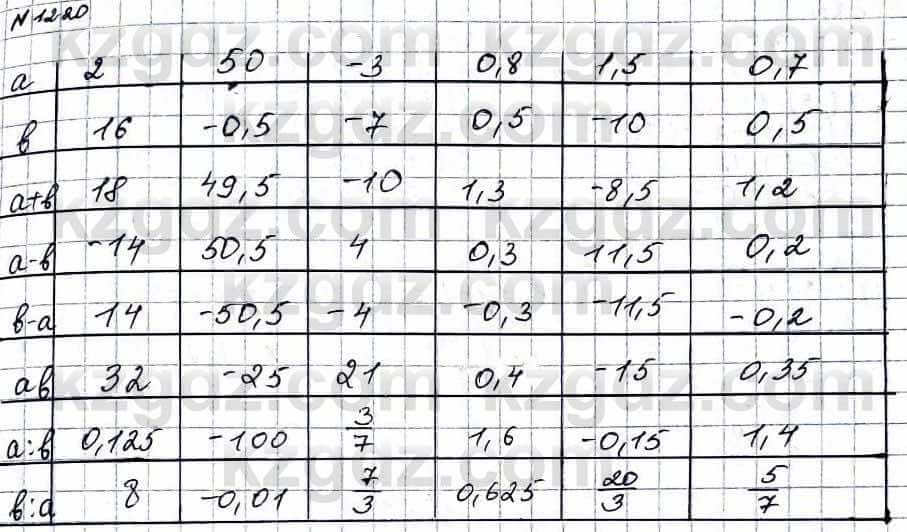 N1220
a 2 50 -3 0,8 1,5 0,7
в 16 -0,5 -7 0,5 -10 0,5
a+в 18 49,5 -10 1,3 -8,5 1,2
a-в -14 50,5 4 0,3 11,5 0,2
в-a 14 -50,5 -4 -0,3 -11,5 -0,2
aв 32 -25 21 0,4 -15 0,35
a:в 0,125 -100 3/7 1,6 -0,15 1,4
в:a 8 -0,01 7/3 0,625 20/3 5/7
kzgdz.com kzgdz.com
kzgdz.com
kzgdz.com kzgdz.com
kzgdz.com
kzgdz.com kzgdz.com
kzgdz.com